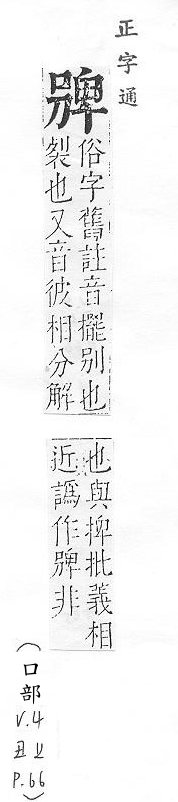 正字通
㗗
俗字舊註音擺別也
裂也又音彼相分解
也與捭批義相
近譌作㗗非
(口部
V.4
丑上
P.66)